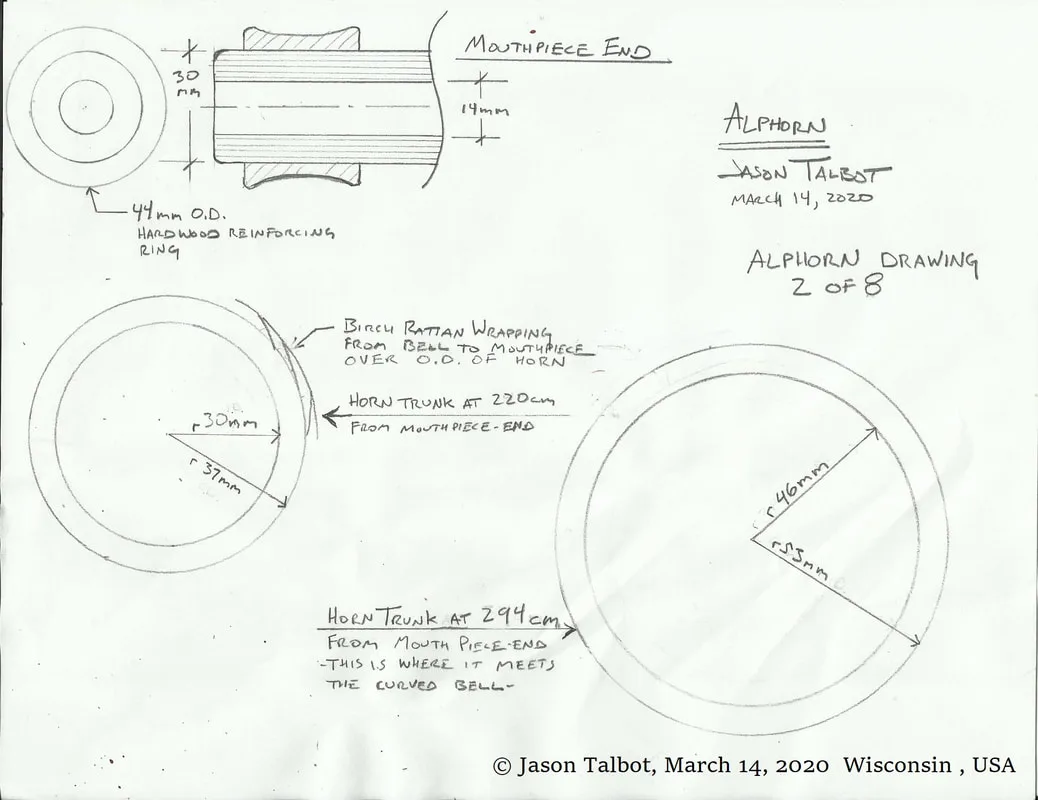 MOUTHPIECE END
30
mm
14mm
44mm O.D.
HARDWOOD REINFORCING
RING
ALPHORN
JASON TALBOT
MARCH 14, 2020
ALPHORN DRAWING
2 OF 8
BIRCH RATTAN WRAPPING
FROM BELL TO MOUTHPIECE
OVER O.D. OF HORN
HORN TRUNK AT 220cm
FROM MOUTHPIECE-END
r 30mm
r 37mm
r 46mm
r 53mm
HORN TRUNK AT 294cm
FROM MOUTH PIECE-END
-THIS IS WHERE IT MEETS
THE CURVED BELL-
© Jason Talbot, March 14, 2020 Wisconsin , USA